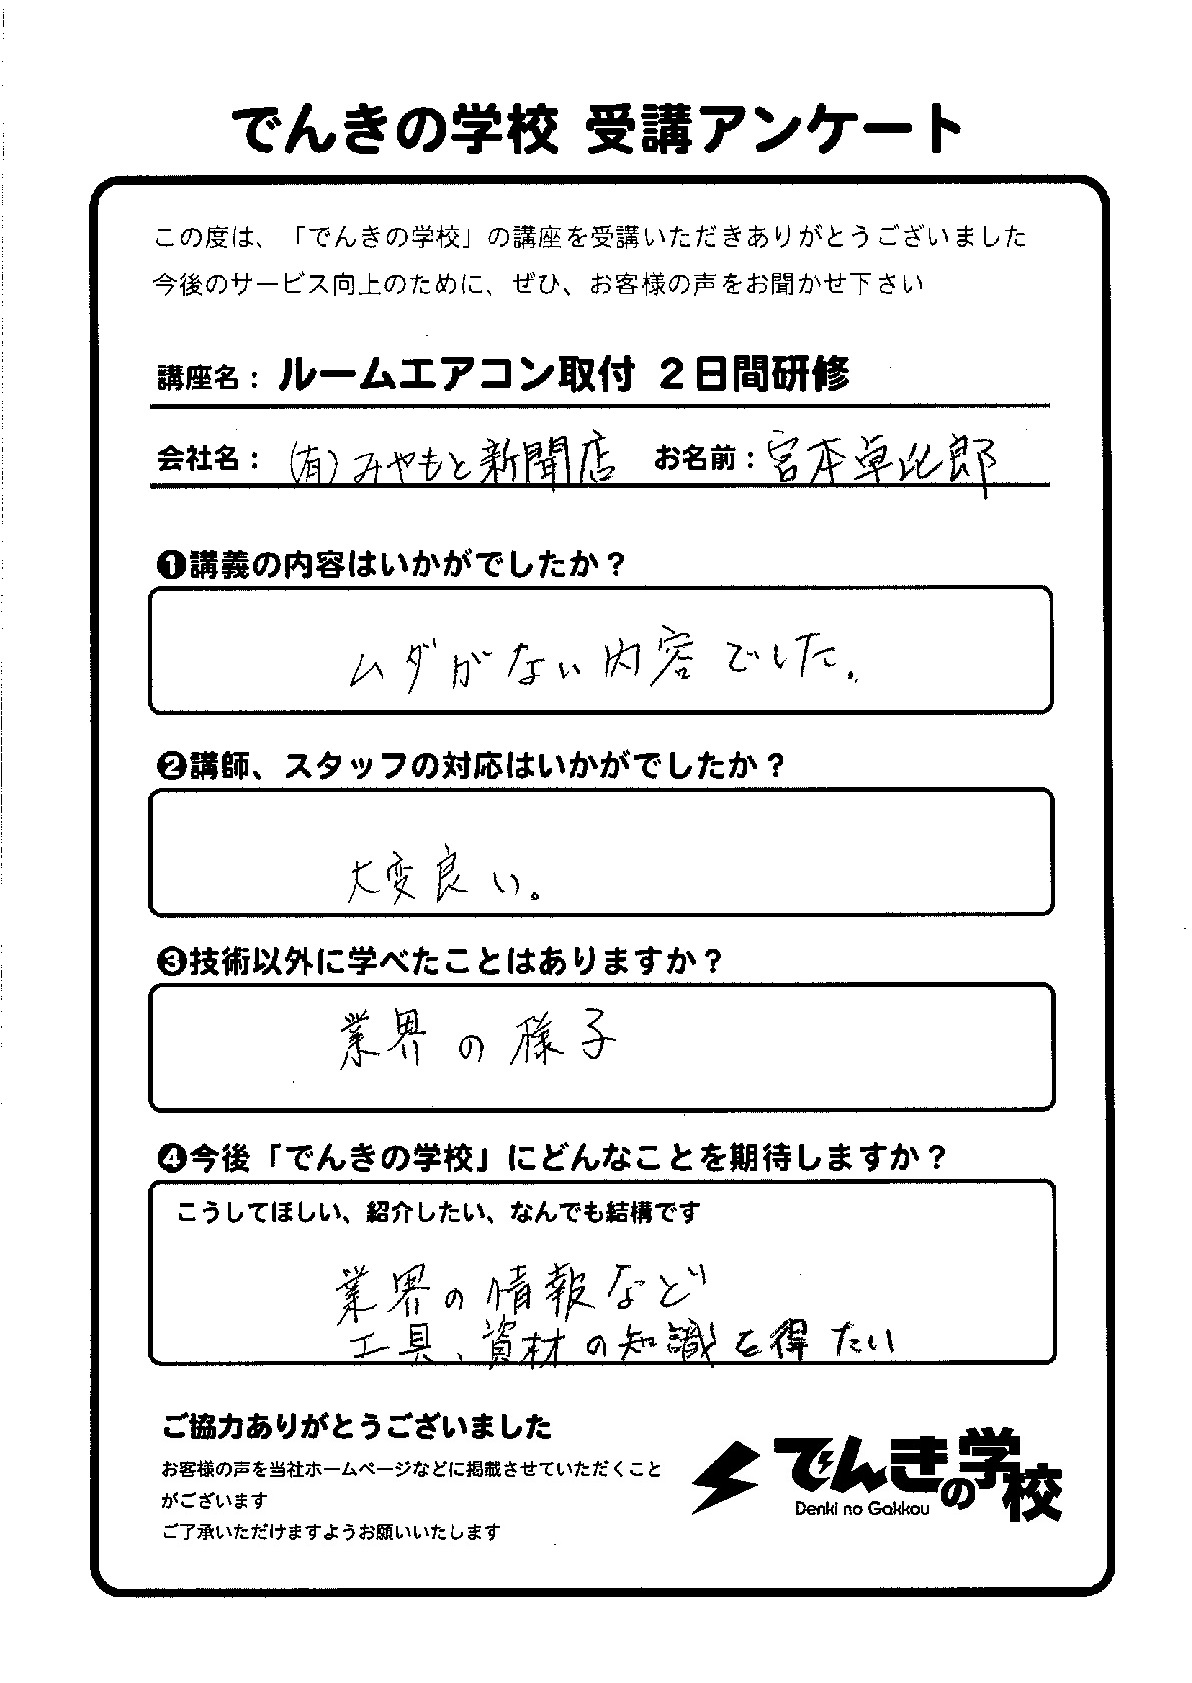 でんきの学校 受講アンケート
この度は、「でんきの学校」の講座を受講いただきありがとうございました
今後のサービス向上のために、ぜひ、お客様の声をお聞かせ下さい
講座名： ルームエアコン取付 2日間研修
会社名： (有)みやもと新聞店 お名前：宮本卓比郎
❶講義の内容はいかがでしたか？
ムダがない内容でした。
❷講師、スタッフの対応はいかがでしたか？
大変良い。
❸技術以外に学べたことはありますか？
業界の様子
❹今後「でんきの学校」にどんなことを期待しますか？
こうしてほしい、紹介したい、なんでも結構です
業界の情報など
工具、資材の知識を得たい
ご協力ありがとうございました
お客様の声を当社ホームページなどに掲載させていただくこと
がございます
ご了承いただけますようお願いいたします
でんきの学校
Denki no Gakkou